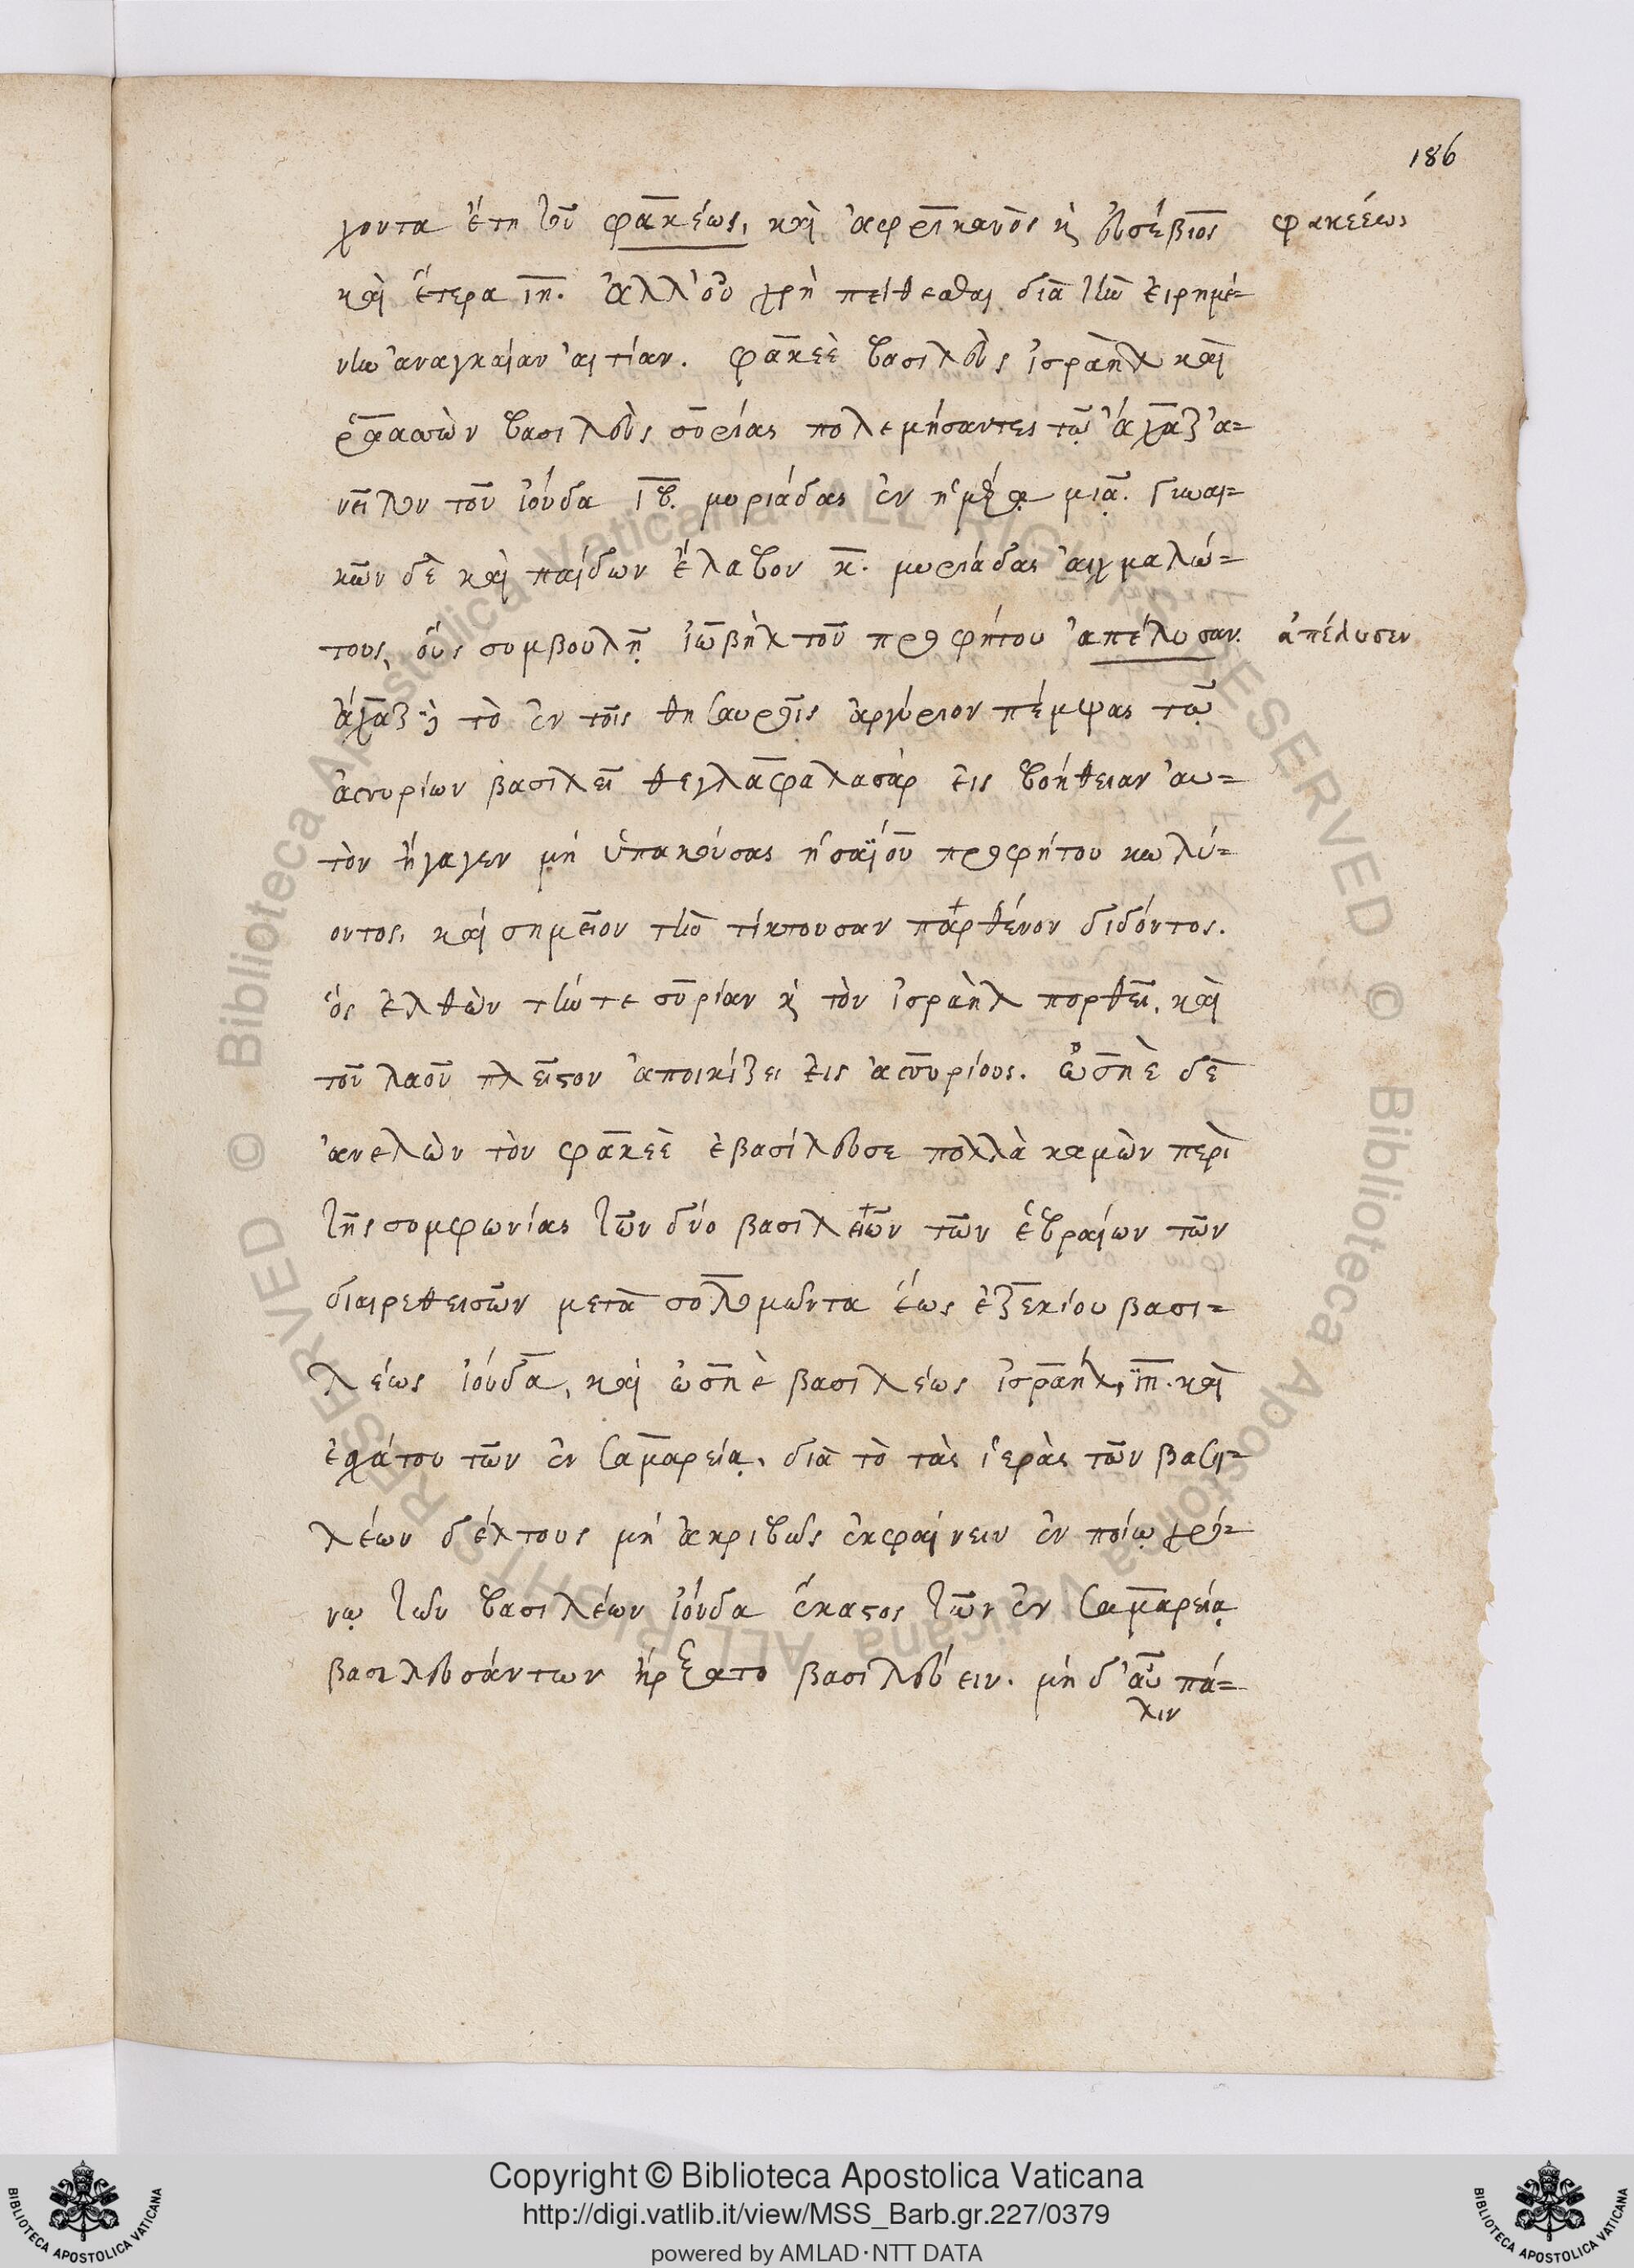 186
χοντα ἔτη τοῦ φακέως, καὶ ἀφρικανὸς κ εὐσέβιος φακεέως
καὶ ἕτερα ιη. ἀλλ' οὐ χρὴ πείθεσθαι διὰ τὴν εἰρημέ=
νην ἀναγκαίαν αἰτίαν. φακεὲ βασιλεὺς ἰσραὴλ καὶ
ῥαασὼν βασιλεὺς συρίας πολεμήσαντες τῷ ἄχαζ ἀ=
νεῖλον τοῦ ἰούδα ιβ. μυριάδας ἐν ἡμέρᾳ μιᾷ. γυναι=
κῶν δὲ καὶ παίδων ἔλαβον κ. μυριάδας αἰχμαλώ=
τους, οὓς συμβουλῇ ἰωβὴλ τοῦ προφήτου ἀπέλυσαν. ἀπέλυσεν
ἄχαζ τὸ ἐν τοῖς θησαυροῖς ἀργύριον πέμψας τῷ
ἀσσυρίων βασιλεῖ θεγλαφαλασὰρ εἰς βοήθειαν αὐ=
τὸν ἤγαγεν μὴ ὑπακούσας ἡσαΐου προφήτου κωλύ=
οντος, καὶ σημεῖον τὴν τίκτουσαν παρθένον διδόντος.
ὃς ἐλθὼν τήν τε συρίαν κ τὸν ἰσραὴλ πορθεῖ, καὶ
τοῦ λαοῦ πλεῖστον ἀποικίζει εἰς ἀσσυρίους. ὠσηὲ δὲ
ἀνελὼν τὸν φακεὲ ἐβασίλευσε πολλὰ καμὼν περὶ
τῆς συμφωνίας τῶν δύο βασιλειῶν τῶν ἑβραίων τῶν
διαιρεθεισῶν μετὰ σολομῶντα ἕως ἐζεκίου βασι=
λέως ἰούδα, καὶ ὠσηὲ βασιλέως ἰσραήλ, ιη. καὶ
ἐσχάτου τῶν ἐν σαμαρείᾳ, διὰ τὸ τὰς ἱερὰς τῶν βασι=
λέων δέλτους μὴ ἀκριβῶς ἐκφαίνειν ἐν ποίῳ χρό=
νῳ τῶν βασιλέων ἰούδα ἕκαστος τῶν ἐν σαμαρείᾳ
βασιλευσάντων ἤρξατο βασιλεύειν. μὴ δ' αὖ πά=
λιν
Copyright © Biblioteca Apostolica Vaticana
http://digi.vatlib.it/view/MSS_Barb.gr.227/0379
powered by AMLAD·NTT DATA
BIBLIOTECA APOSTOLICA VATICANA
BIBLIOTECA APOSTOLICA VATICANA
© Biblioteca Apostolica Vaticana ALL RIGHTS RESERVED © Biblioteca Apostolica Vaticana ALL RIGHTS RESERVED